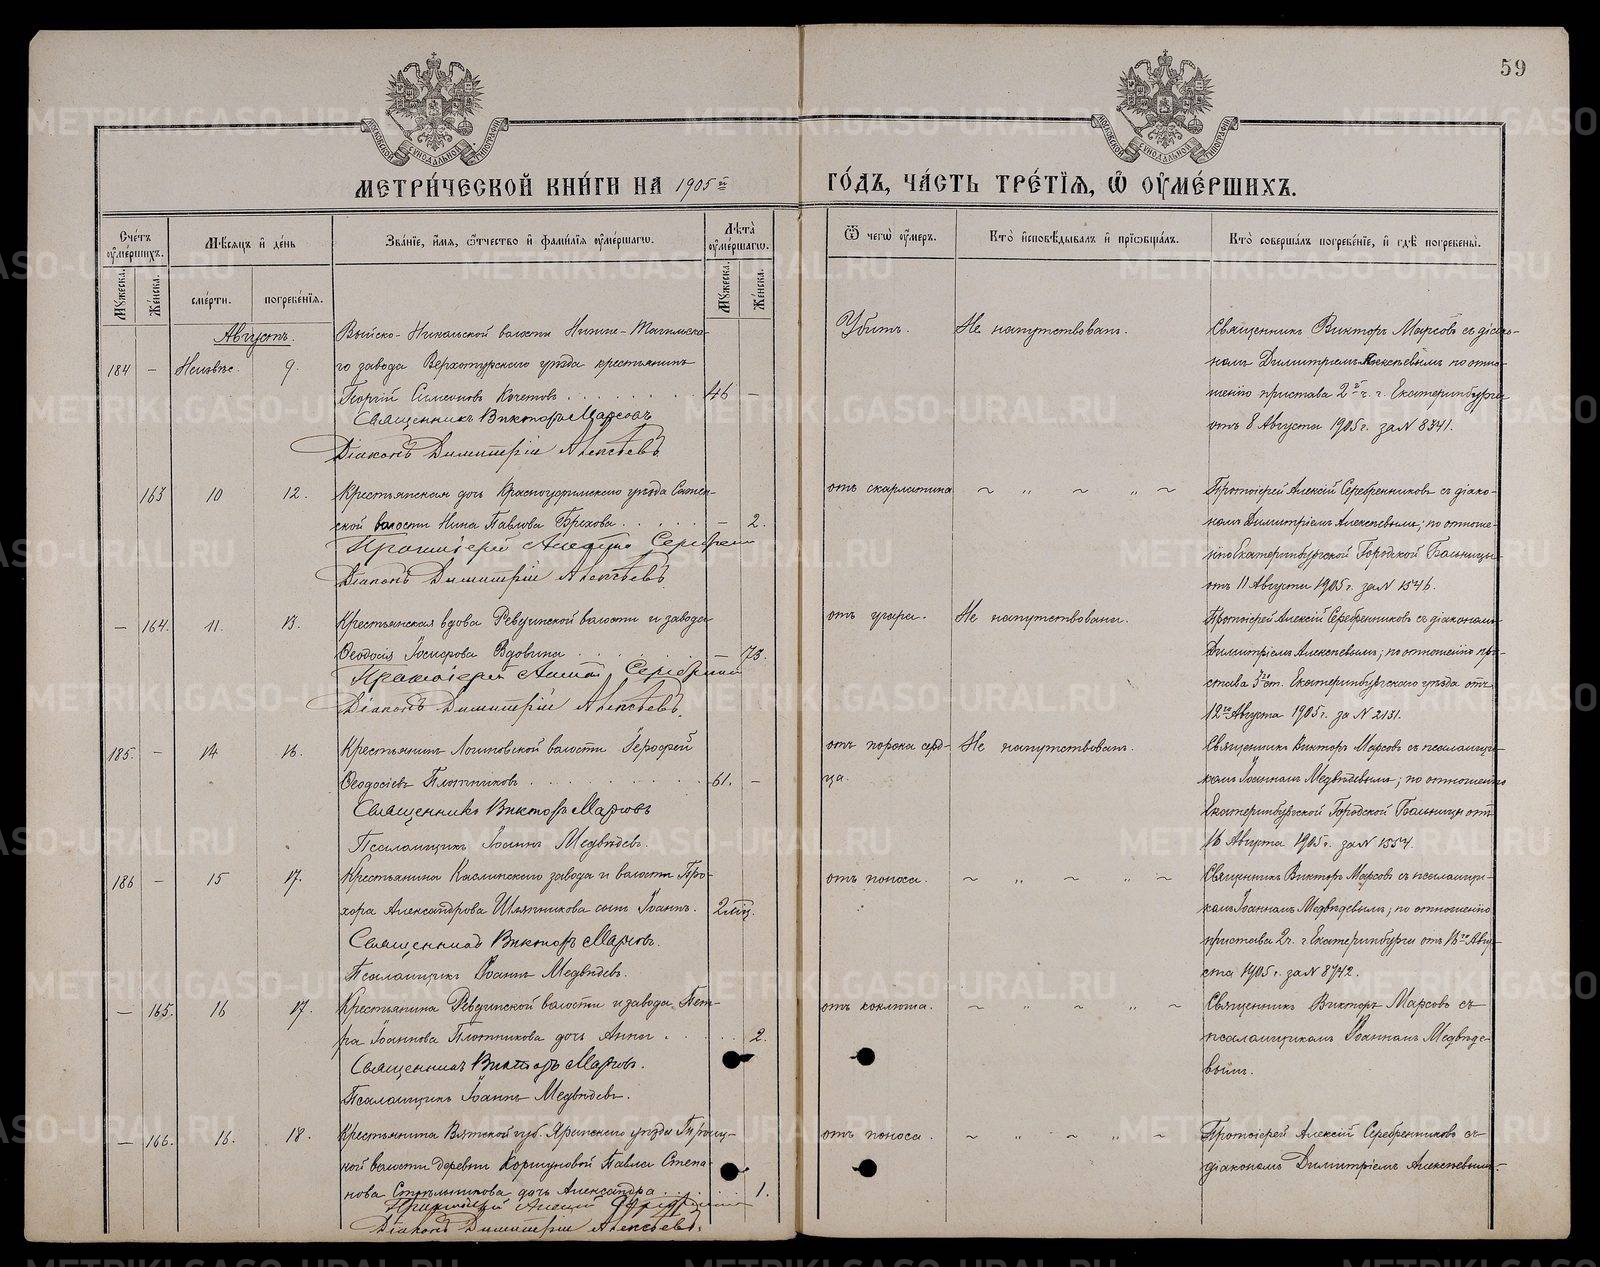 59
МОСКОВСКОЙ СУНОДАЛЬНОЙ ТИПОГРАФІИ
МОСКОВСКОЙ СУНОДАЛЬНОЙ ТИПОГРАФІИ
МЕТРИ́ЧЕСКОЙ КНИ́ГИ НА 1905 й
ГО́ДЪ, ЧА́СТЬ ТРЕ́ТІѦ, Ѡ҆ ОУ҆МЕ́РШИХЪ.
Сче́тъ оу҆ме́ршихъ.
Мѣ́сѧцъ и҆ де́нь
Зва́нїе, и҆́мѧ, ѻ҆́тчество и҆ фами́лїѧ оу҆ме́ршагѡ.
Лѣ́та оу҆ме́ршагѡ.
Ѿ чегѡ̀ оу҆́меръ.
Кто̀ и҆сповѣ́дывалъ и҆ прїѡбща́лъ.
Кто̀ соверша́лъ погребе́нїе, и҆ гдѣ̀ погребены̀.
Мꙋ́жеска.
Же́нска.
сме́рти.
погребе́нїѧ.
Мꙋ́жеска.
Же́нска.
Августъ.
184 — Неизвѣс. 9.
Выйско-Никольской волости Нижне-Тагильска-
го завода Верхотурскаго уѣзда крестьянинъ
Георгій Симеоновъ Кочетовъ 46 —
Священникъ Викторъ Марсовъ
Діаконъ Димитрій Алексѣевъ
Убитъ.
Не напутствованъ.
Священникъ Викторъ Марсовъ съ діако-
номъ Димитріемъ Алексѣевымъ по отно-
шенію пристава 2й ч. г. Екатеринбурга
отъ 8 Августа 1905 г. за N 8741.
163 10 12.
Крестьянская дочь Красноуфимскаго уѣзда
ской волости Нина Павлова Брехова — 2.
Протоіерей Алексій Серебрен
Діаконъ Димитрій Алексѣевъ
отъ скарлатина
~ „ ~ „ ~
Протоіерей Алексій Серебренниковъ съ діако-
номъ Димитріемъ Алексѣевымъ; по отноше-
нію Екатеринбургской Городской Больницы
отъ 11 Августа 1905 г. за N 1546.
— 164. 11. 13.
Крестьянская вдова Ревдинской волости и завода
Ѳеодосія Іосифова Вдовина 73.
Протоіерей Алексій Серебрен
Діаконъ Димитрій Алексѣевъ.
отъ угара.
Не напутствована.
Протоіерей Алексій Серебренниковъ съ діакономъ
Димитріемъ Алексѣевымъ; по отношенію при-
става 3го ст. Екатеринбургскаго уѣзда отъ
12го Августа 1905 г. за N 2131.
185. — 14 16.
Крестьянинъ Логиновской волости Іерофей
Ѳеодосіевъ Плотниковъ 61. —
Священникъ Викторъ Марсовъ
Псаломщикъ Іоаннъ Медвѣдевъ.
отъ порока серд-
ца.
Не напутствованъ.
Священникъ Викторъ Марсовъ съ псаломщи-
комъ Іоанномъ Медвѣдевымъ; по отношенію
Екатеринбургской Городской Больницы отъ
16 Августа 1905 г. за N 1554.
186 — 15 17.
Крестьянина Каслинскаго завода и волости Про-
хора Александрова Шляпникова сынъ Іоаннъ. 2 мѣц.
Священникъ Викторъ Марсовъ.
Псаломщикъ Іоаннъ Медвѣдевъ.
отъ поноса.
~ „ ~ „ ~
Священникъ Викторъ Марсовъ съ псаломщи-
комъ Іоанномъ Медвѣдевымъ; по отношенію
пристава 2 ч. г. Екатеринбурга отъ 16го Авгу-
ста 1905 г. за N 8742.
— 165. 16 17.
Крестьянина Ревдинской волости и завода Пет-
ра Іоаннова Плотникова дочь Анна 2.
Священникъ Викторъ Марсовъ.
Псаломщикъ Іоаннъ Медвѣдевъ.
отъ коклюша.
~ „ ~ „ ~
Священникъ Викторъ Марсовъ съ
псаломщикомъ Іоанномъ Медвѣде-
вымъ.
— 166. 16. 18.
Крестьянина Вятской губ. Яранскаго уѣзда Троиц-
кой волости деревни Коршуновой Павла Степа-
нова Стрѣльникова дочь Александра 1.
Протоіерей Алексій Серебрен
Діаконъ Димитрій Алексѣевъ.
отъ поноса.
~ „ ~ „ ~
Протоіерей Алексій Серебренниковъ съ
діакономъ Димитріемъ Алексѣевымъ.
METRIKI.GASO-URAL.RU